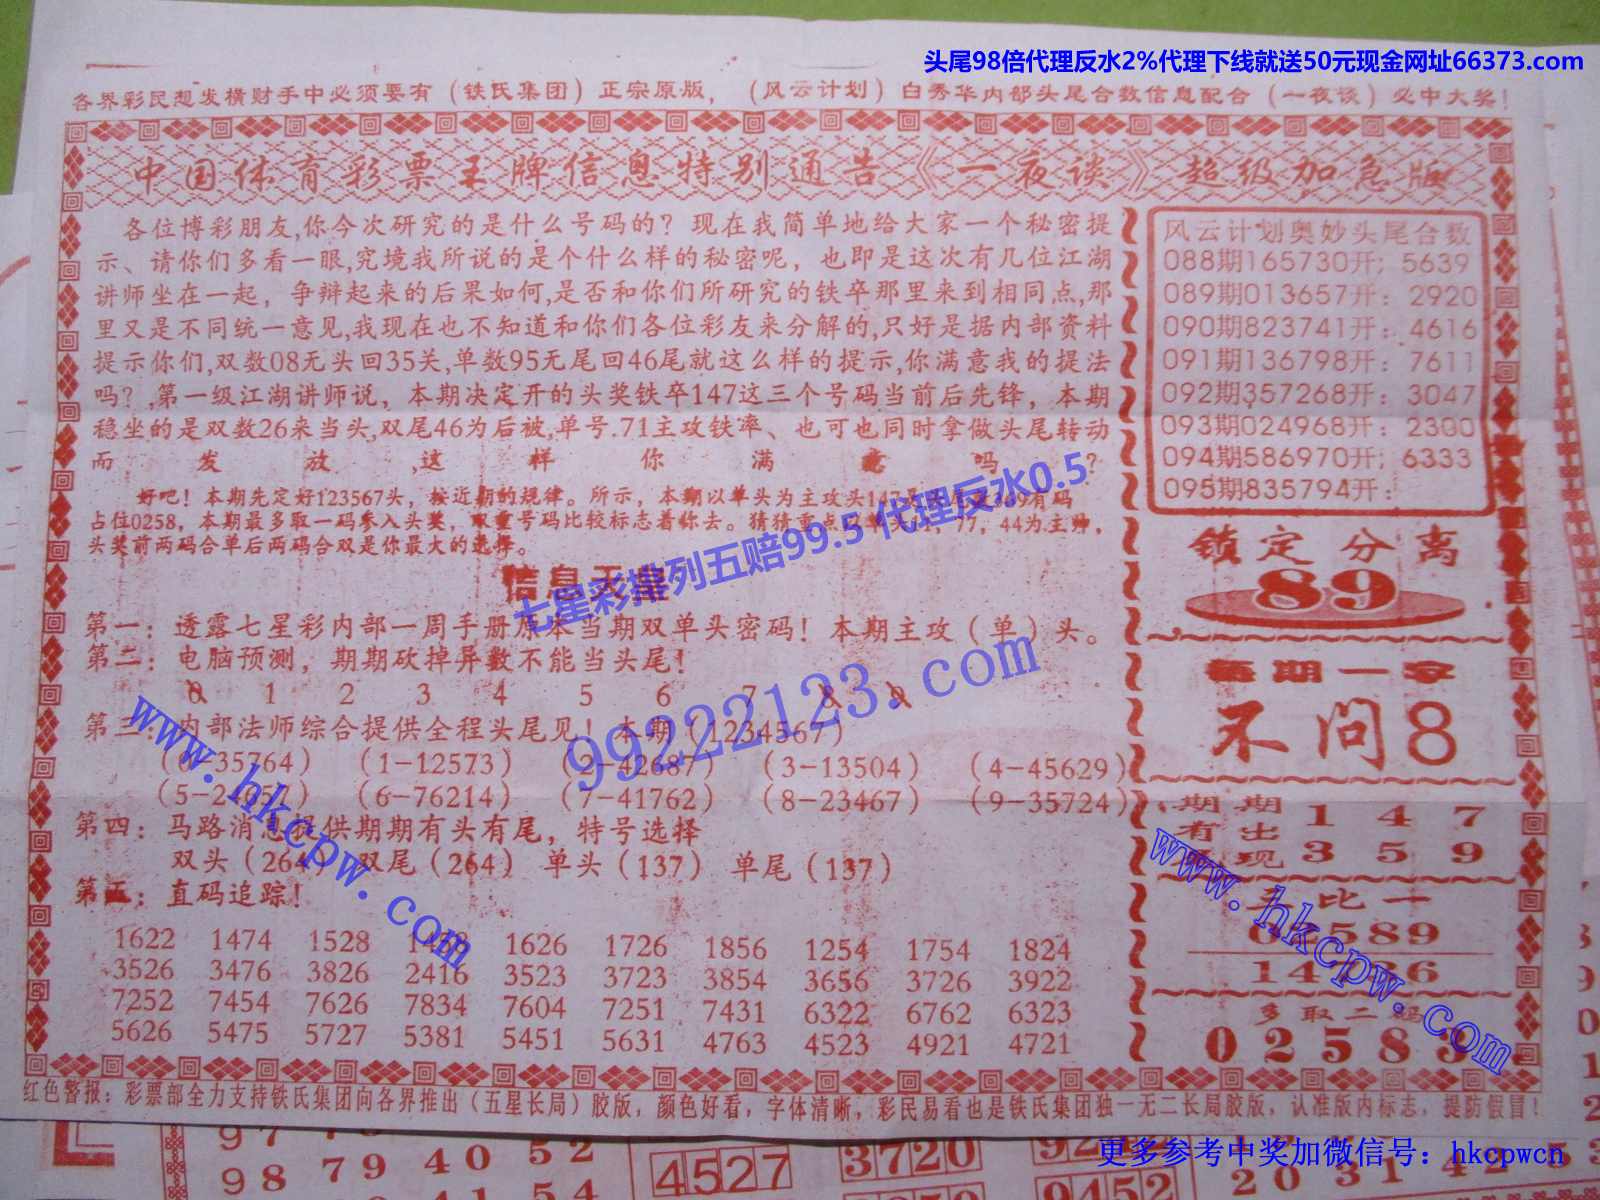 头尾98倍代理反水2%代理下线就送50元现金网址66373.com
各界彩民想发横财手中必须要有（铁氏集团）正宗原版，（风云计划）白秀华内部头尾合数信息配合（一夜谈）必中大奖！
中国体育彩票王牌信息特别通告《一夜谈》超级加急版
各位博彩朋友,你今次研究的是什么号码的？现在我简单地给大家一个秘密提
示、请你们多看一眼,究境我所说的是个什么样的秘密呢，也即是这次有几位江湖
讲师坐在一起，争辩起来的后果如何,是否和你们所研究的铁卒那里来到相同点,那
里又是不同统一意见,我现在也不知道和你们各位彩友来分解的,只好是据内部资料
提示你们,双数08无头回35关,单数95无尾回46尾就这么样的提示,你满意我的提法
吗？,第一级江湖讲师说，本期决定开的头奖铁卒147这三个号码当前后先锋，本期
稳坐的是双数26来当头,双尾46为后被,单号.71主攻铁率、也可也同时拿做头尾转动
而发放,这样你满意吗？
好吧！本期先定好123567头，按近期的规律。所示，本期以单头为主攻头147 369有码
占位0258，本期最多取一码参入头奖，双重号码比较标志着你去。猜猜重点 单头 77，44为主帅，
头奖前两码合单后两码合双是你最大的选择。
信息天皇
第一：透露七星彩内部一周手册原本当期双单头密码！本期主攻（单）头。
第二：电脑预测，期期砍掉异数不能当头尾！
0 1 2 3 4 5 6 7 8 9
第三：内部法师综合提供全程头尾见！本期（1234567）
（0-35764）（1-12573）（2-42687）（3-13504）（4-45629）
（6-76214）（7-41762）（8-23467）（9-35724）
第四：马路消息提供期期有头有尾，特号选择
双头（264）双尾（264）单头（137）单尾（137）
第五：直码追踪！
1622 1474 1528 1626 1726 1856 1254 1754 1824
3526 3476 3826 2416 3523 3723 3854 3656 3726 3922
7252 7454 7626 7834 7604 7251 7431 6322 6762 6323
5626 5475 5727 5381 5451 5631 4763 4523 4921 4721
风云计划奥妙头尾合数
088期165730开；5639
089期013657开：2920
090期823741开：4616
091期136798开：7611
092期357268开：3047
093期024968开：2300
094期586970开；6333
095期835794开：
锁定分离
89
每期一字
不问8
期期有出现
1 4 7
3 5 9
比一
589
多取二码
02583
红色警报：彩票部全力支持铁氏集团向各界推出（五星长局）胶版，颜色好看，字体清晰，彩民易看也是铁氏集团独一无二长局胶版，认准版内标志，提防假冒！
七星彩排列五赔99.5代理反水0.5
99222123.com
www.hkcpw.com
www.hkcpw.com
98 79 40 52
4527
3720
9452
20 31 42 53
更多参考中奖加微信号：hkcpwcn